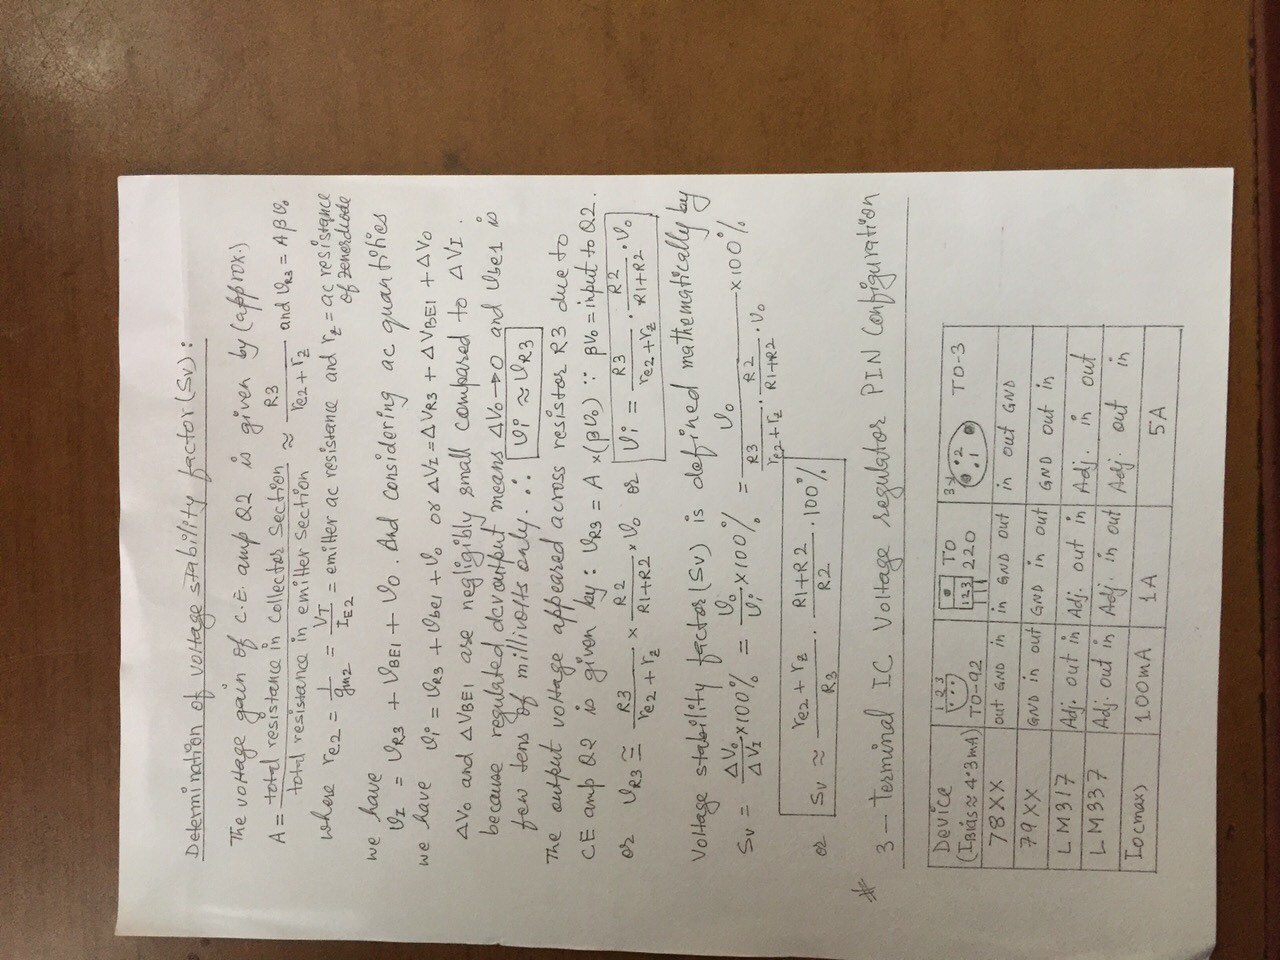 Determination of voltage stability factor (Sv) :
The voltage gain of C.E. amp Q2 is given by (approx.)
A = total resistance in collector section / total resistance in emitter section ≈ R3 / (re2 + rz) and VR3 = A β Vo
where re2 = 1/gm2 = VT/IE2 = emitter ac resistance and rz = ac resistance of zenerdiode
we have
VI = VR3 + VBE1 + VO . And considering ac quantities
we have vi = vR3 + vbe1 + vo or ΔVI = ΔVR3 + ΔVBE1 + ΔVO
ΔVo and ΔVBE1 are negligibly small compared to ΔVI .
because regulated dcv output means ΔVo → 0 and vbe1 is
few tens of millivolts only. ∴ vi ≈ vR3
The output voltage appeared across resistor R3 due to
CE amp Q2 is given by : vR3 = A × (β vo) ∵ βvo = input to Q2.
or vR3 ≅ R3 / (re2 + rz) × R2 / (R1+R2) × vo or vi = R3 / (re2 + rz) · R2 / (R1+R2) · vo
Voltage stability factor (Sv) is defined mathematically by
Sv = ΔVo / ΔVI × 100% = vo / vi × 100% = vo / (R3 / (re2 + rz) · R2 / (R1+R2) · vo) × 100%
or Sv ≈ (re2 + rz) / R3 · (R1+R2) / R2 · 100%
* 3 – Terminal IC Voltage regulator PIN Configuration
Device (IBias ≈ 4.3mA) 1 2 3 TO-92 123 TO 220 3 2 1 TO-3
78XX out GND in in GND out in out GND
79XX GND in out GND in out GND out in
LM317 Adj. out in Adj. out in Adj. in out
LM337 Adj. out in Adj. in out Adj. out in
Io(max) 100mA 1A 5A